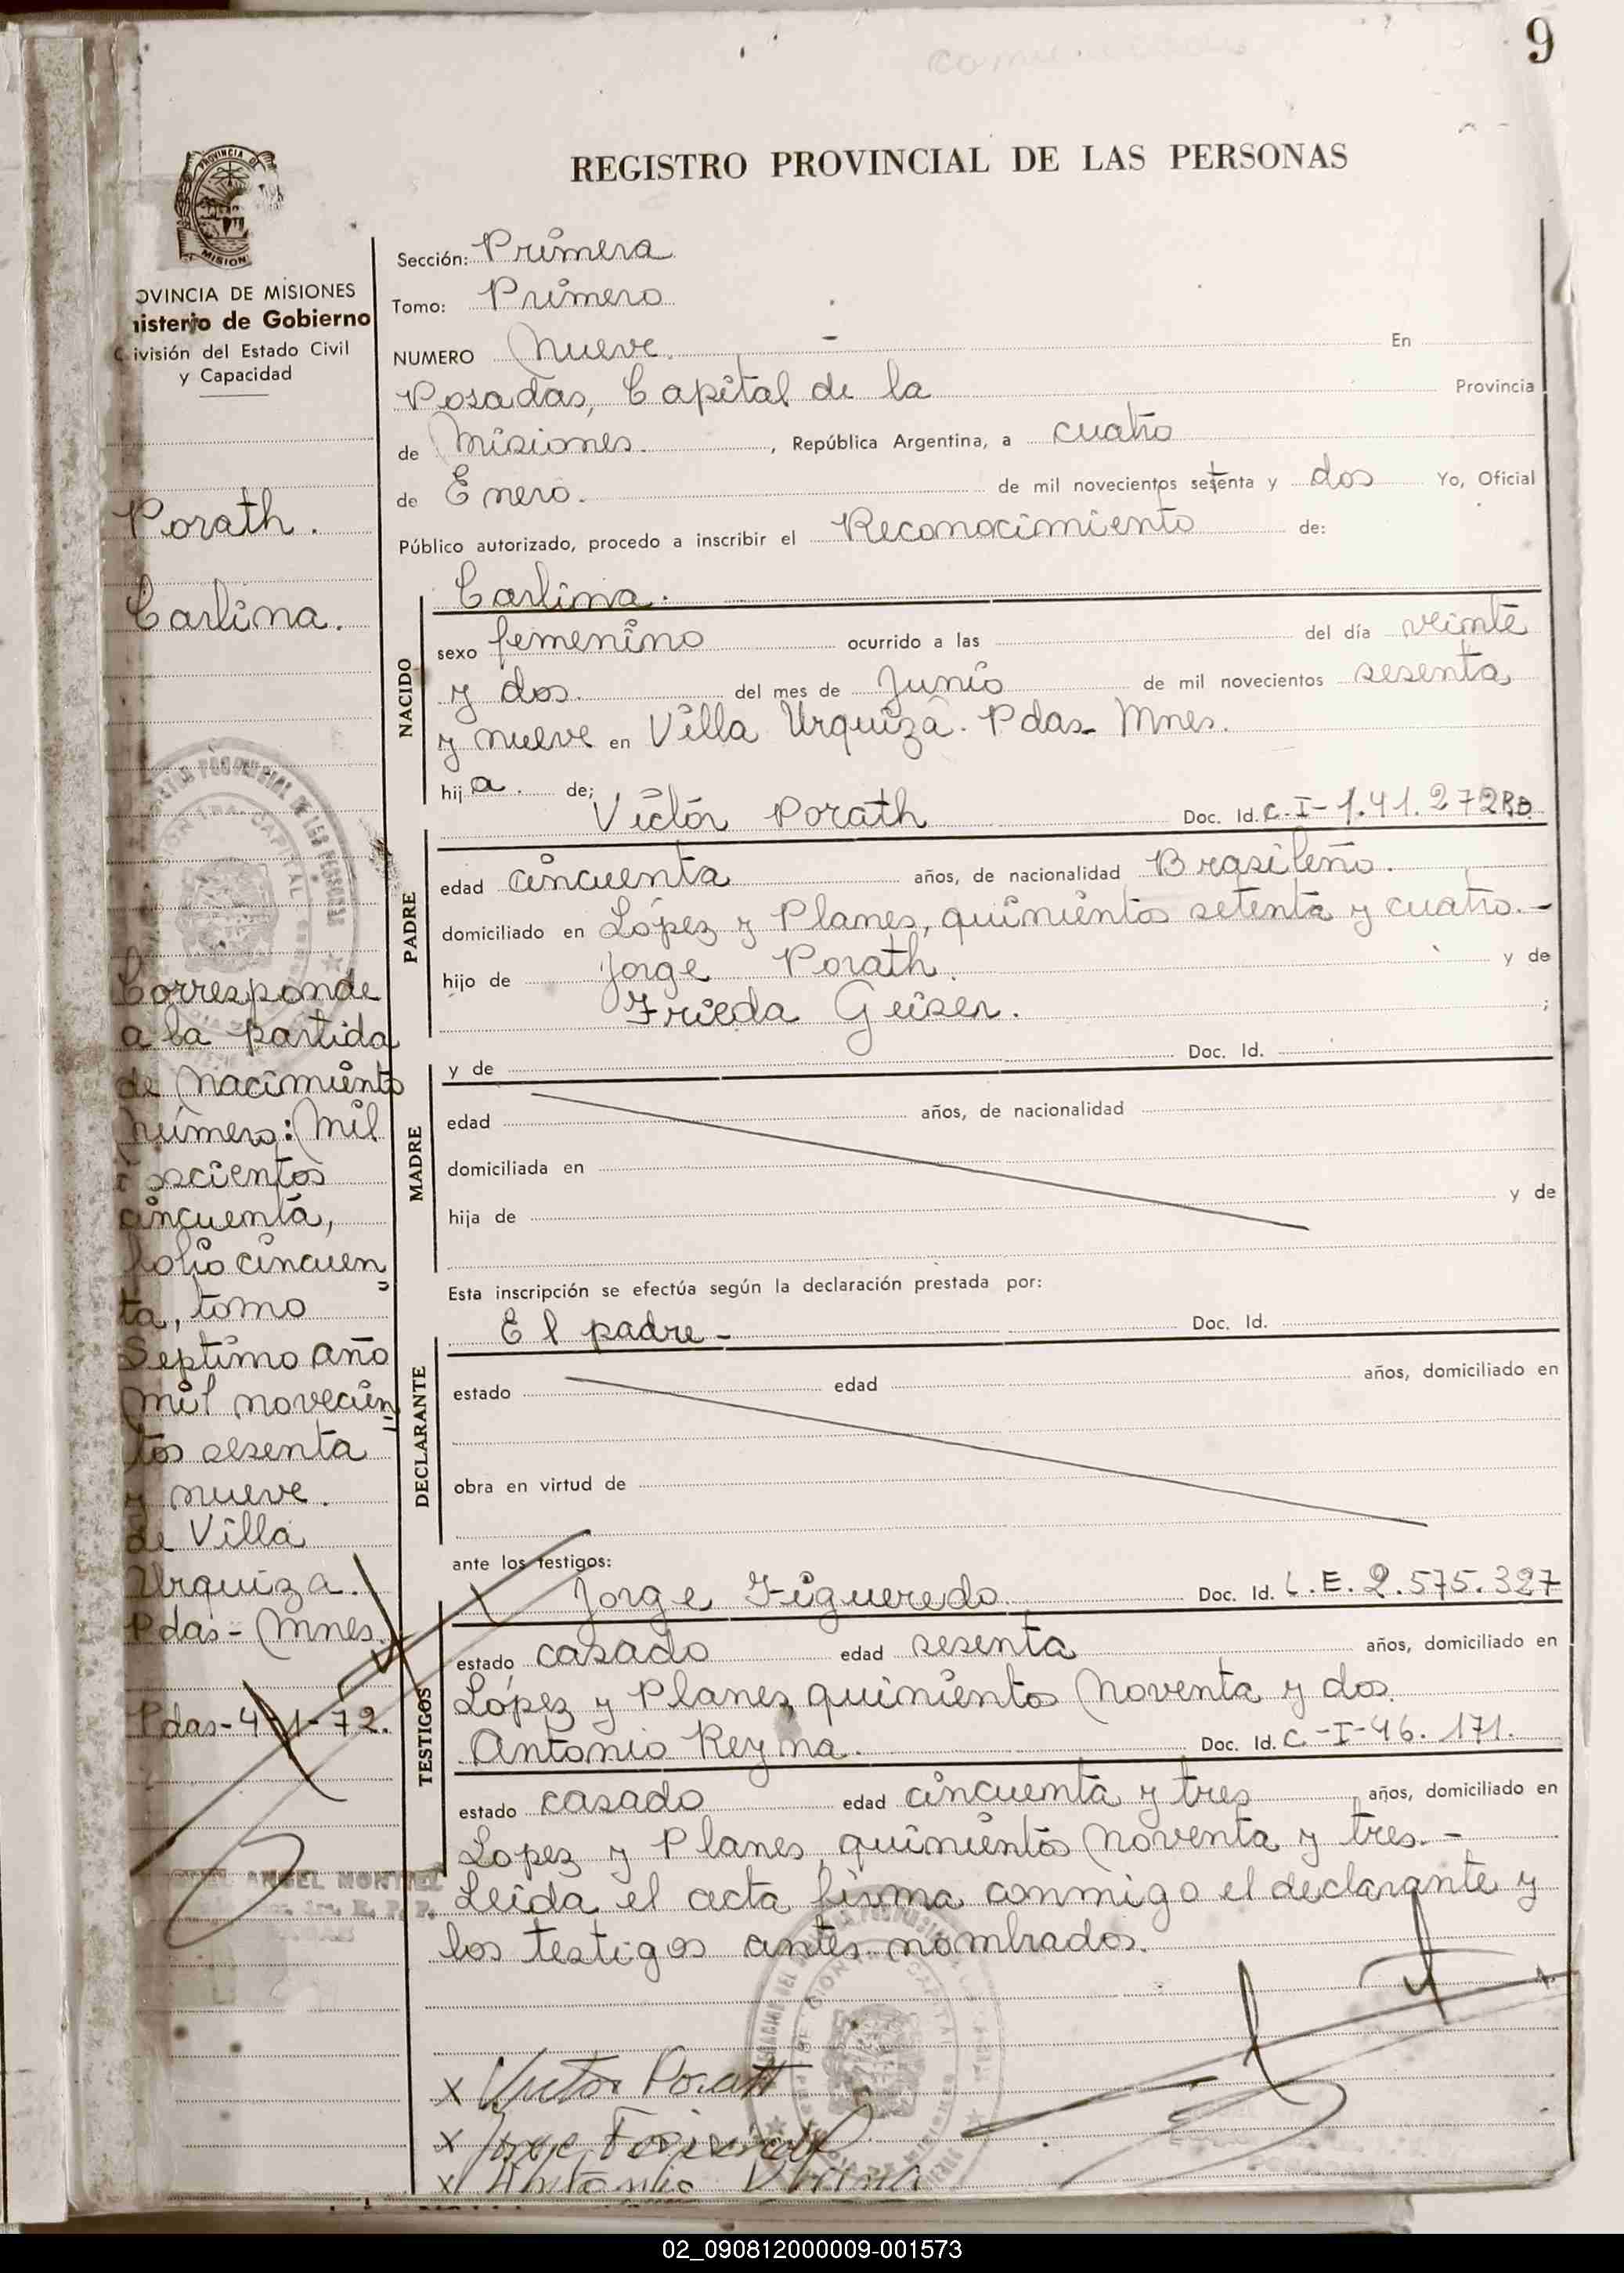 9
REGISTRO PROVINCIAL DE LAS PERSONAS
PROVINCIA DE
MISION
OVINCIA DE MISIONES
nisterio de Gobierno
ivisión del Estado Civil
y Capacidad
Porath.
Carlina.
Corresponde
a la partida
de Nacimiento
Número: Mil
cincuenta,
folio cincuen
ta, tomo
Septimo año
mil novecien
tos sesenta
y nueve.
de Villa
Urquiza.
Pdas - Mnes.
Pdas-4-1-72.
ANGEL MONTIEL
Sección: Primera
Tomo: Primero
NUMERO Nueve. - En
Posadas, Capital de la Provincia
de Misiones. , República Argentina, a cuatro
de Enero. de mil novecientos setenta y dos Yo, Oficial
Público autorizado, procedo a inscribir el Reconocimiento de:
Carlina.
NACIDO
sexo femenino ocurrido a las del día veinte
y dos. del mes de Junio de mil novecientos sesenta
y nueve en Villa Urquiza. Pdas- Mnes.
hij a. de;
Victór Porath Doc. Id. C-I-1.41.272
PADRE
edad cincuenta años, de nacionalidad Brasileño.
domiciliado en López y Planes, quinientos setenta y cuatro.-
hijo de Jorge Porath. y de
Frieda Geisen. ;
y de Doc. Id.
MADRE
edad años, de nacionalidad
domiciliada en
hija de y de
Esta inscripción se efectúa según la declaración prestada por:
El padre - Doc. Id.
DECLARANTE
estado edad años, domiciliado en
obra en virtud de
ante los testigos:
Jorge Figueredo. Doc. Id. L.E. 2.575.327
TESTIGOS
estado casado edad sesenta años, domiciliado en
López y Planes, quinientos noventa y dos.
Antonio Reyna. Doc. Id. C-I-46.171.
estado casado edad cincuenta y tres años, domiciliado en
Lopez y Planes, quinientos noventa y tres.-
Leida el acta firma conmigo el declarante y
los testigos antes nombrados.
x Victor Porath
x Jorge
x Antonio
02_090812000009-001573